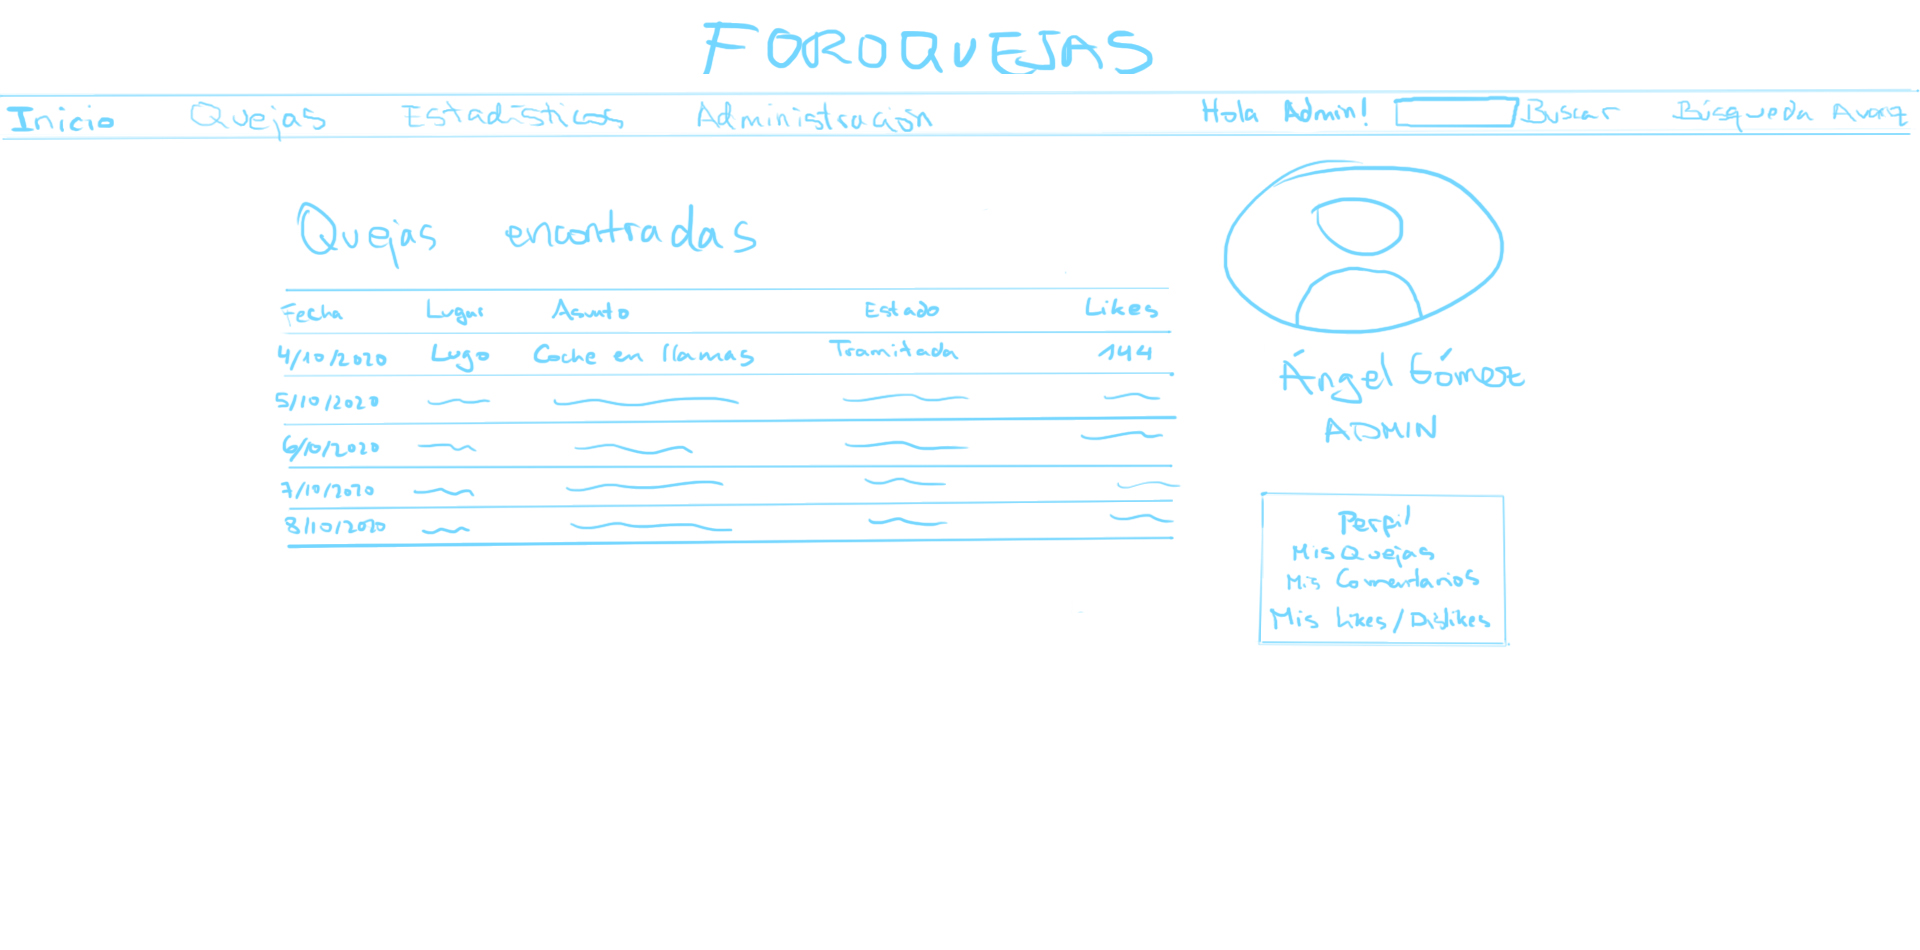 FOROQUEJAS
Inicio Quejas Estadísticas Administración Hola Admin! Buscar Búsqueda Avanz
Quejas encontradas
Fecha Lugar Asunto Estado Likes
4/10/2020 Lugo Coche en llamas Tramitada 144
5/10/2020
6/10/2020
7/10/2020
8/10/2020
Ángel Gómez
ADMIN
Perfil
Mis Quejas
Mis Comentarios
Mis Likes/Dislikes